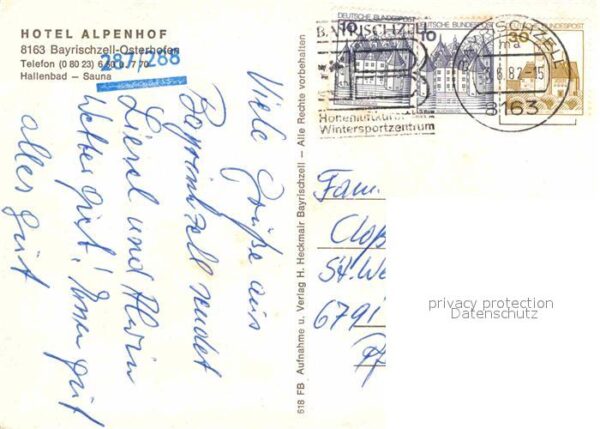 HOTEL ALPENHOF
8163 Bayrischzell-Osterhofen
Telefon (0 80 23) 6 80 u. 7 70
Hallenbad – Sauna
287/288
Viele Grüße aus
Bayrischzell sendet
Liesel und Alwin
Wetter gut! Essen gut
alles gut
618 FB Aufnahme u. Verlag H. Heckmair Bayrischzell – Alle Rechte vorbehalten
DEUTSCHE BUNDESPOST
10
DEUTSCHE BUNDESPOST
10
BUNDESPOST
30
BAYRISCHZELL
Höhenluftkurort
Wintersportzentrum
BAYRISCHZELL
ma
.6.82-15
8163
Fam
St. We
6791
privacy protection
Datenschutz